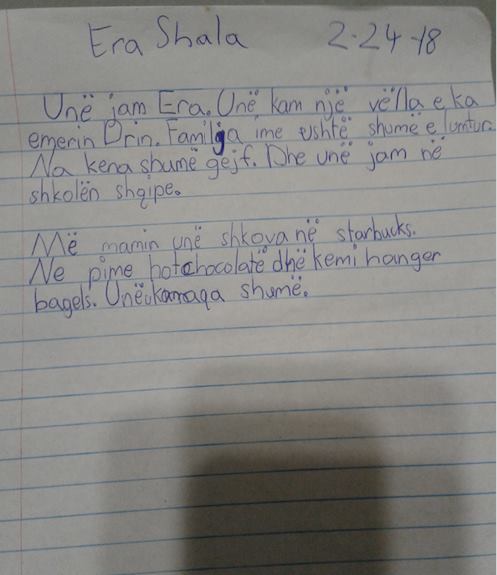 Era Shala 2-24-18
Unë jam Era. Unë kam një vëlla e ka
emerin Drin. Familja ime është shumë e lumtur
Na kena shumë qejf. Dhe unë jam në
shkolën shqipe.
Më mamin unë shkova në starbucks.
Ne pime hotchocolatë dhë kemi hanger
bagels. Unë shumë.